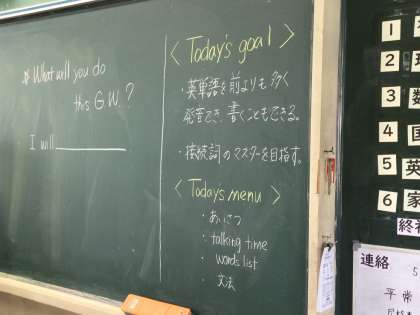 ※ What will you do
this G.W.?
I will
〈Today's goal〉
・英単語を前よりも多く
発音でき、書くこともできる。
・接続詞のマスターを目指す。
〈Today's menu〉
・あいさつ
・talking time
・words list
・文法
1
2
3 数
4 国
5 英
6 家
終礼
連絡
5
平常